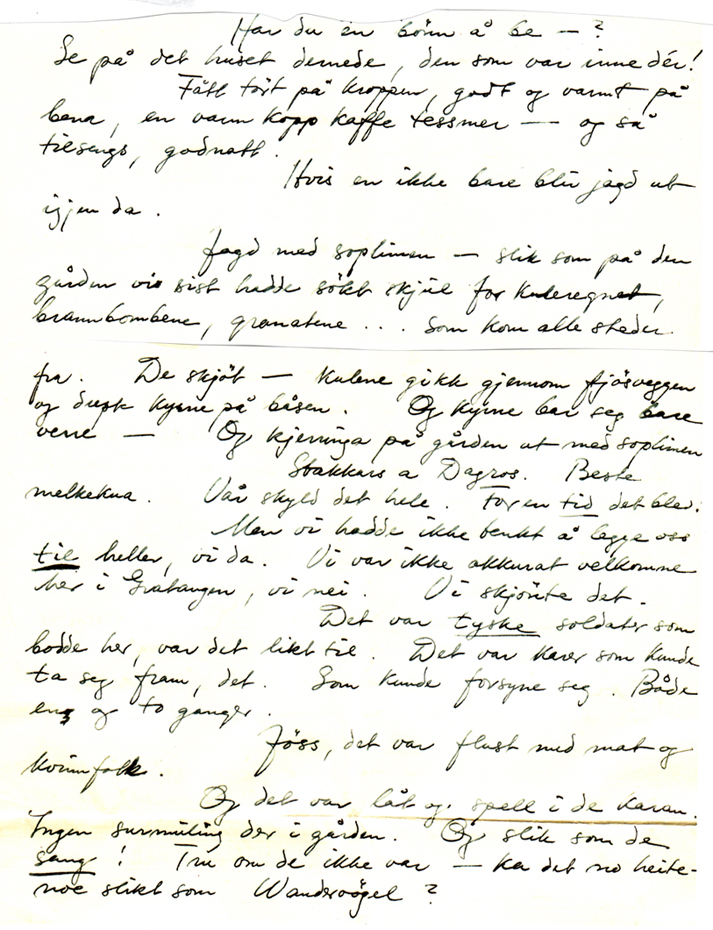 Har du en bönn å be — ?
Se på det huset dernede, den som var inne dér!
Fått tört på kroppen, godt og varmt på
bena, en varm kopp kaffe tessmer — og så
tilsengs, godnatt.
Hvis en ikke bare blir jagd ut
igjen da.
Jagd med soplimen — slik som på den
gården vi sist hadde sökt skjul for kuleregnet,
brannbombene, granatene ... Som kom alle steder
fra. De skjöt — kulene gikk gjennom fjösveggen
og drepte kyrne på båsen. Og kyrne bar seg bare
verre — Og kjerringa på gården ut med soplimen
Stakkars a Dagros. Beste
melkekua. Vår skyld det hele. For en tid det blev.
Men vi hadde ikke tenkt å legge oss
til heller, vi da. Vi var ikke akkurat velkomne
her i Gratangen, vi nei. Vi skjönte det.
Det var tyske soldater som
bodde her, var det likt til. Det var karer som kunde
ta seg fram, det. Som kunde forsyne seg. Både
en og to ganger.
Jöss, det var flust med mat og
kvinnfolk.
Og det var låt og spell i de karan.
Ingen surmuling der i gården. Og slik som de
sang! Tru om de ikke var — ka det no heite-
noe slikt som Wandervögel?